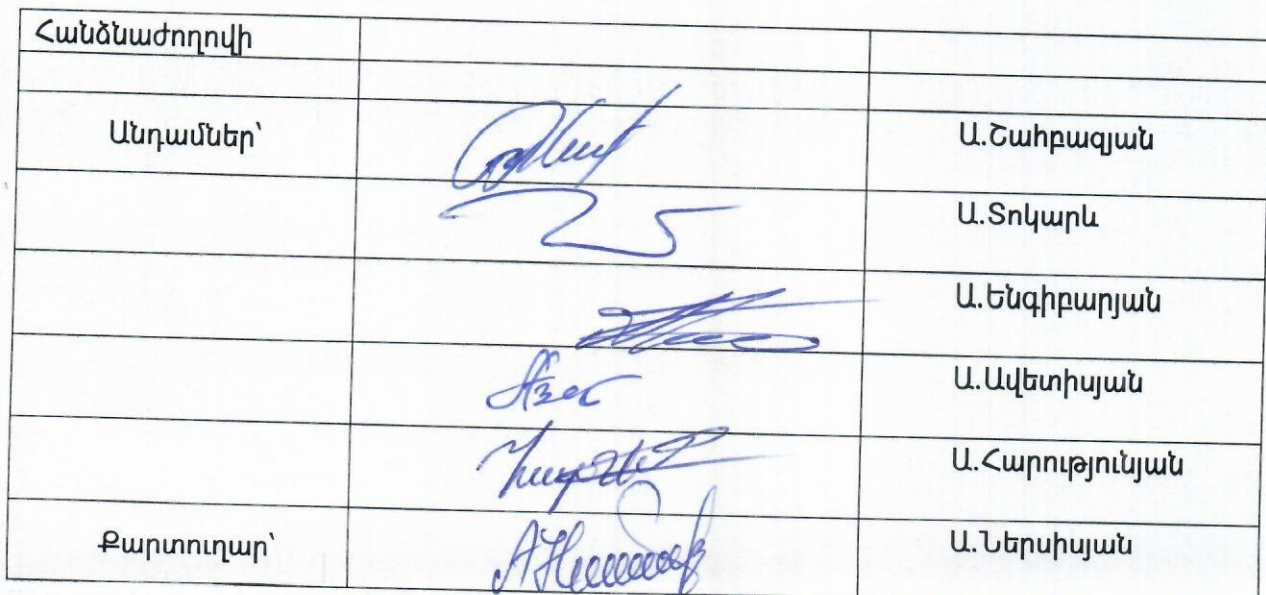 Հանձնաժողովի
Անդամներ՝ Ա.Շահբազյան
Ա.Տոկարև
Ա.Ենգիբարյան
Ա.Ավետիսյան
Ա.Հարությունյան
Քարտուղար՝ Ա.Ներսիսյան